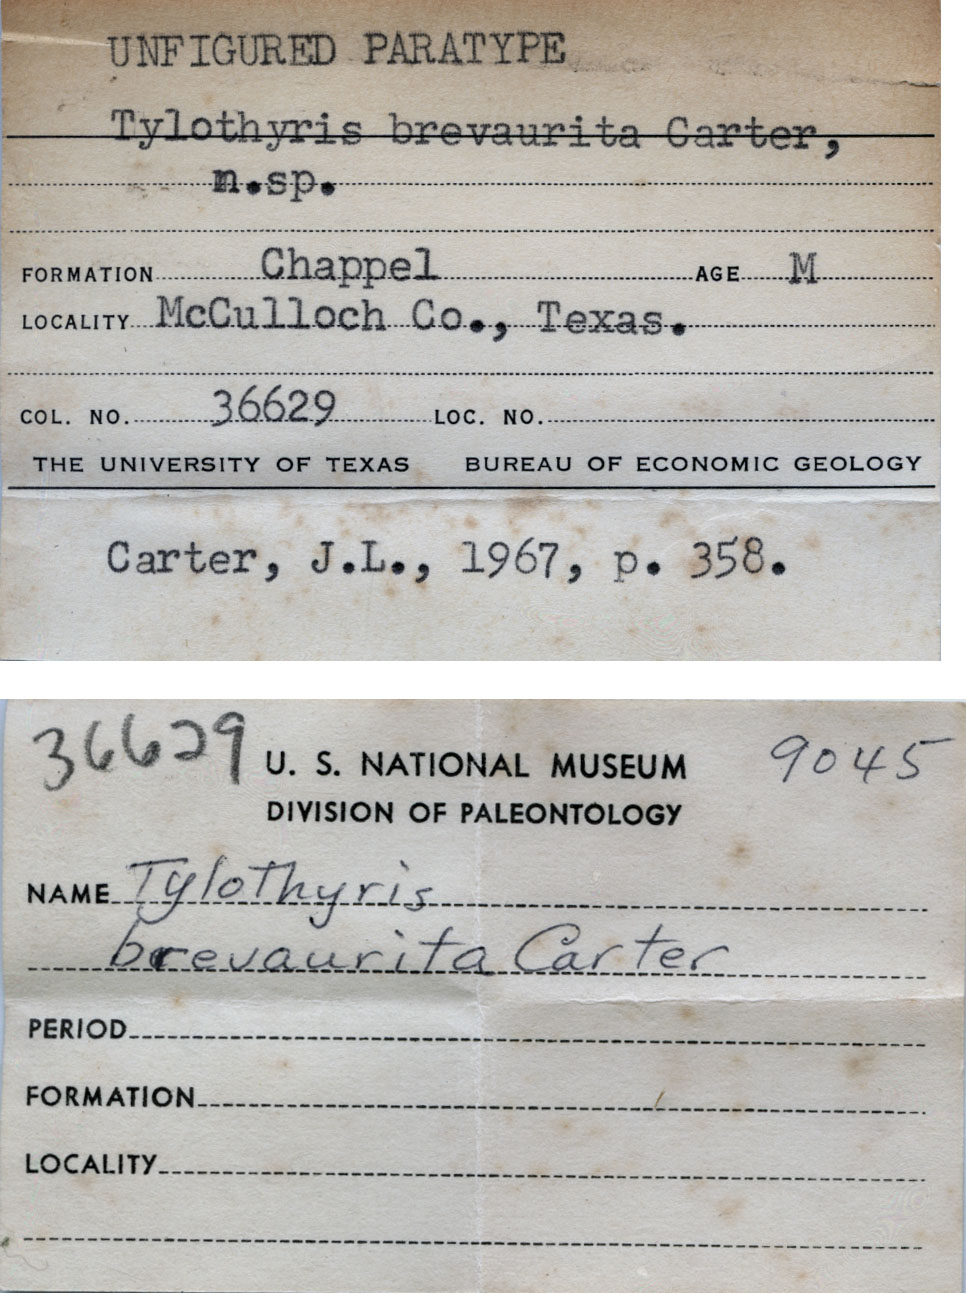 UNFIGURED PARATYPE
Tylothyris brevaurita Carter,
n.sp.
FORMATION Chappel AGE M
LOCALITY McCulloch Co., Texas.
COL. NO. 36629 LOC. NO.
THE UNIVERSITY OF TEXAS BUREAU OF ECONOMIC GEOLOGY
Carter, J.L., 1967, p. 358.
36629 U. S. NATIONAL MUSEUM 9045
DIVISION OF PALEONTOLOGY
NAME Tylothyris
brevaurita Carter
PERIOD
FORMATION
LOCALITY